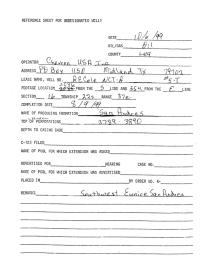 REFERENCE SHEET FOR UNDESIGNATED WELLS
DATE 10/6/99
OIL/GAS Oil
COUNTY Lea
OPERATOR Chevron USA Inc
ADDRESS PO Box 1150 Midland Tx 79702
LEASE NAME, WELL NO.
FOOTAGE LOCATION FROM THE S LINE AND FROM THE E LINE
SECTION 16 TOWNSHIP 22S RANGE 37E
COMPLETION DATE 8/9/99
NAME OF PRODUCING FORMATION San Andres
TOP OF PERFORATIONS 3789 - 3890
DEPTH TO CASING SHOE
C-123 FILED
NAME OF POOL FOR WHICH EXTENSION WAS ASKED
ADVERTISED FOR HEARING CASE NO.
NAME OF POOL FOR WHICH EXTENSION WAS ADVERTISED
PLACED IN BY ORDER NO. R-
REMARKS Southwest Eunice San Andres